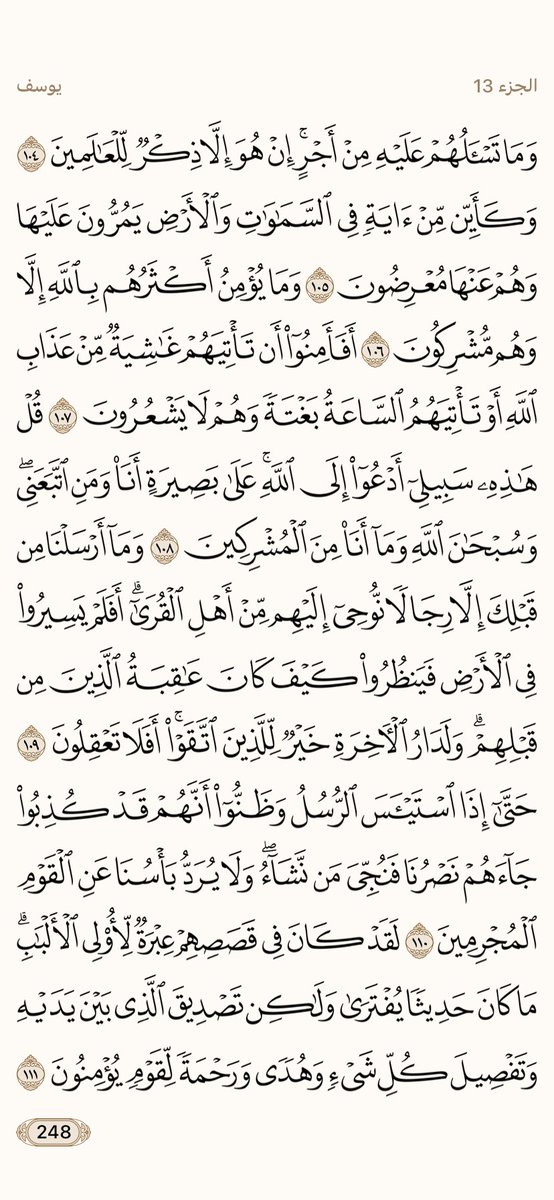 الجزء 13
يوسف
وَمَا تَسْـَٔلُهُمْ عَلَيْهِ مِنْ أَجْرٍۚ إِنْ هُوَ إِلَّا ذِكْرٌ لِّلْعَٰلَمِينَ ١٠٤
وَكَأَيِّن مِّنْ ءَايَةٍ فِى ٱلسَّمَٰوَٰتِ وَٱلْأَرْضِ يَمُرُّونَ عَلَيْهَا
وَهُمْ عَنْهَا مُعْرِضُونَ ١٠٥ وَمَا يُؤْمِنُ أَكْثَرُهُم بِٱللَّهِ إِلَّا
وَهُم مُّشْرِكُونَ ١٠٦ أَفَأَمِنُوٓا۟ أَن تَأْتِيَهُمْ غَٰشِيَةٌ مِّنْ عَذَابِ
ٱللَّهِ أَوْ تَأْتِيَهُمُ ٱلسَّاعَةُ بَغْتَةً وَهُمْ لَا يَشْعُرُونَ ١٠٧ قُلْ
هَٰذِهِۦ سَبِيلِىٓ أَدْعُوٓا۟ إِلَى ٱللَّهِۚ عَلَىٰ بَصِيرَةٍ أَنَا۠ وَمَنِ ٱتَّبَعَنِىۖ
وَسُبْحَٰنَ ٱللَّهِ وَمَآ أَنَا۠ مِنَ ٱلْمُشْرِكِينَ ١٠٨ وَمَآ أَرْسَلْنَا مِن
قَبْلِكَ إِلَّا رِجَالًا نُّوحِىٓ إِلَيْهِم مِّنْ أَهْلِ ٱلْقُرَىٰٓۗ أَفَلَمْ يَسِيرُوا۟
فِى ٱلْأَرْضِ فَيَنظُرُوا۟ كَيْفَ كَانَ عَٰقِبَةُ ٱلَّذِينَ مِن
قَبْلِهِمْۗ وَلَدَارُ ٱلْءَاخِرَةِ خَيْرٌ لِّلَّذِينَ ٱتَّقَوْا۟ۚ أَفَلَا تَعْقِلُونَ ١٠٩
حَتَّىٰٓ إِذَا ٱسْتَيْـَٔسَ ٱلرُّسُلُ وَظَنُّوٓا۟ أَنَّهُمْ قَدْ كُذِبُوا۟
جَآءَهُمْ نَصْرُنَا فَنُجِّىَ مَن نَّشَآءُۖ وَلَا يُرَدُّ بَأْسُنَا عَنِ ٱلْقَوْمِ
ٱلْمُجْرِمِينَ ١١٠ لَقَدْ كَانَ فِى قَصَصِهِمْ عِبْرَةٌ لِّأُو۟لِى ٱلْأَلْبَٰبِۗ
مَا كَانَ حَدِيثًا يُفْتَرَىٰ وَلَٰكِن تَصْدِيقَ ٱلَّذِى بَيْنَ يَدَيْهِ
وَتَفْصِيلَ كُلِّ شَىْءٍ وَهُدًى وَرَحْمَةً لِّقَوْمٍ يُؤْمِنُونَ ١١١
248